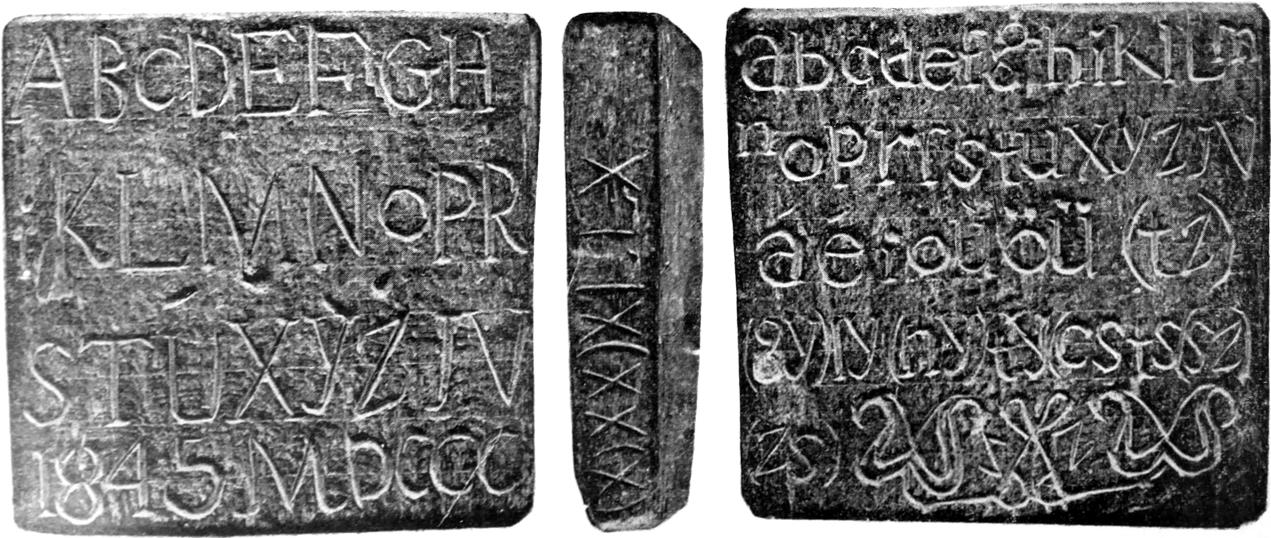 ABCDEFGH
KLMNOPR
STUXYZJV
1845 MDCCCC
abcdefghiklm
noprſstuxyzjv
áéíoűöü (tz)
(gy)ly(ny)ty(cs tssz)
zs)